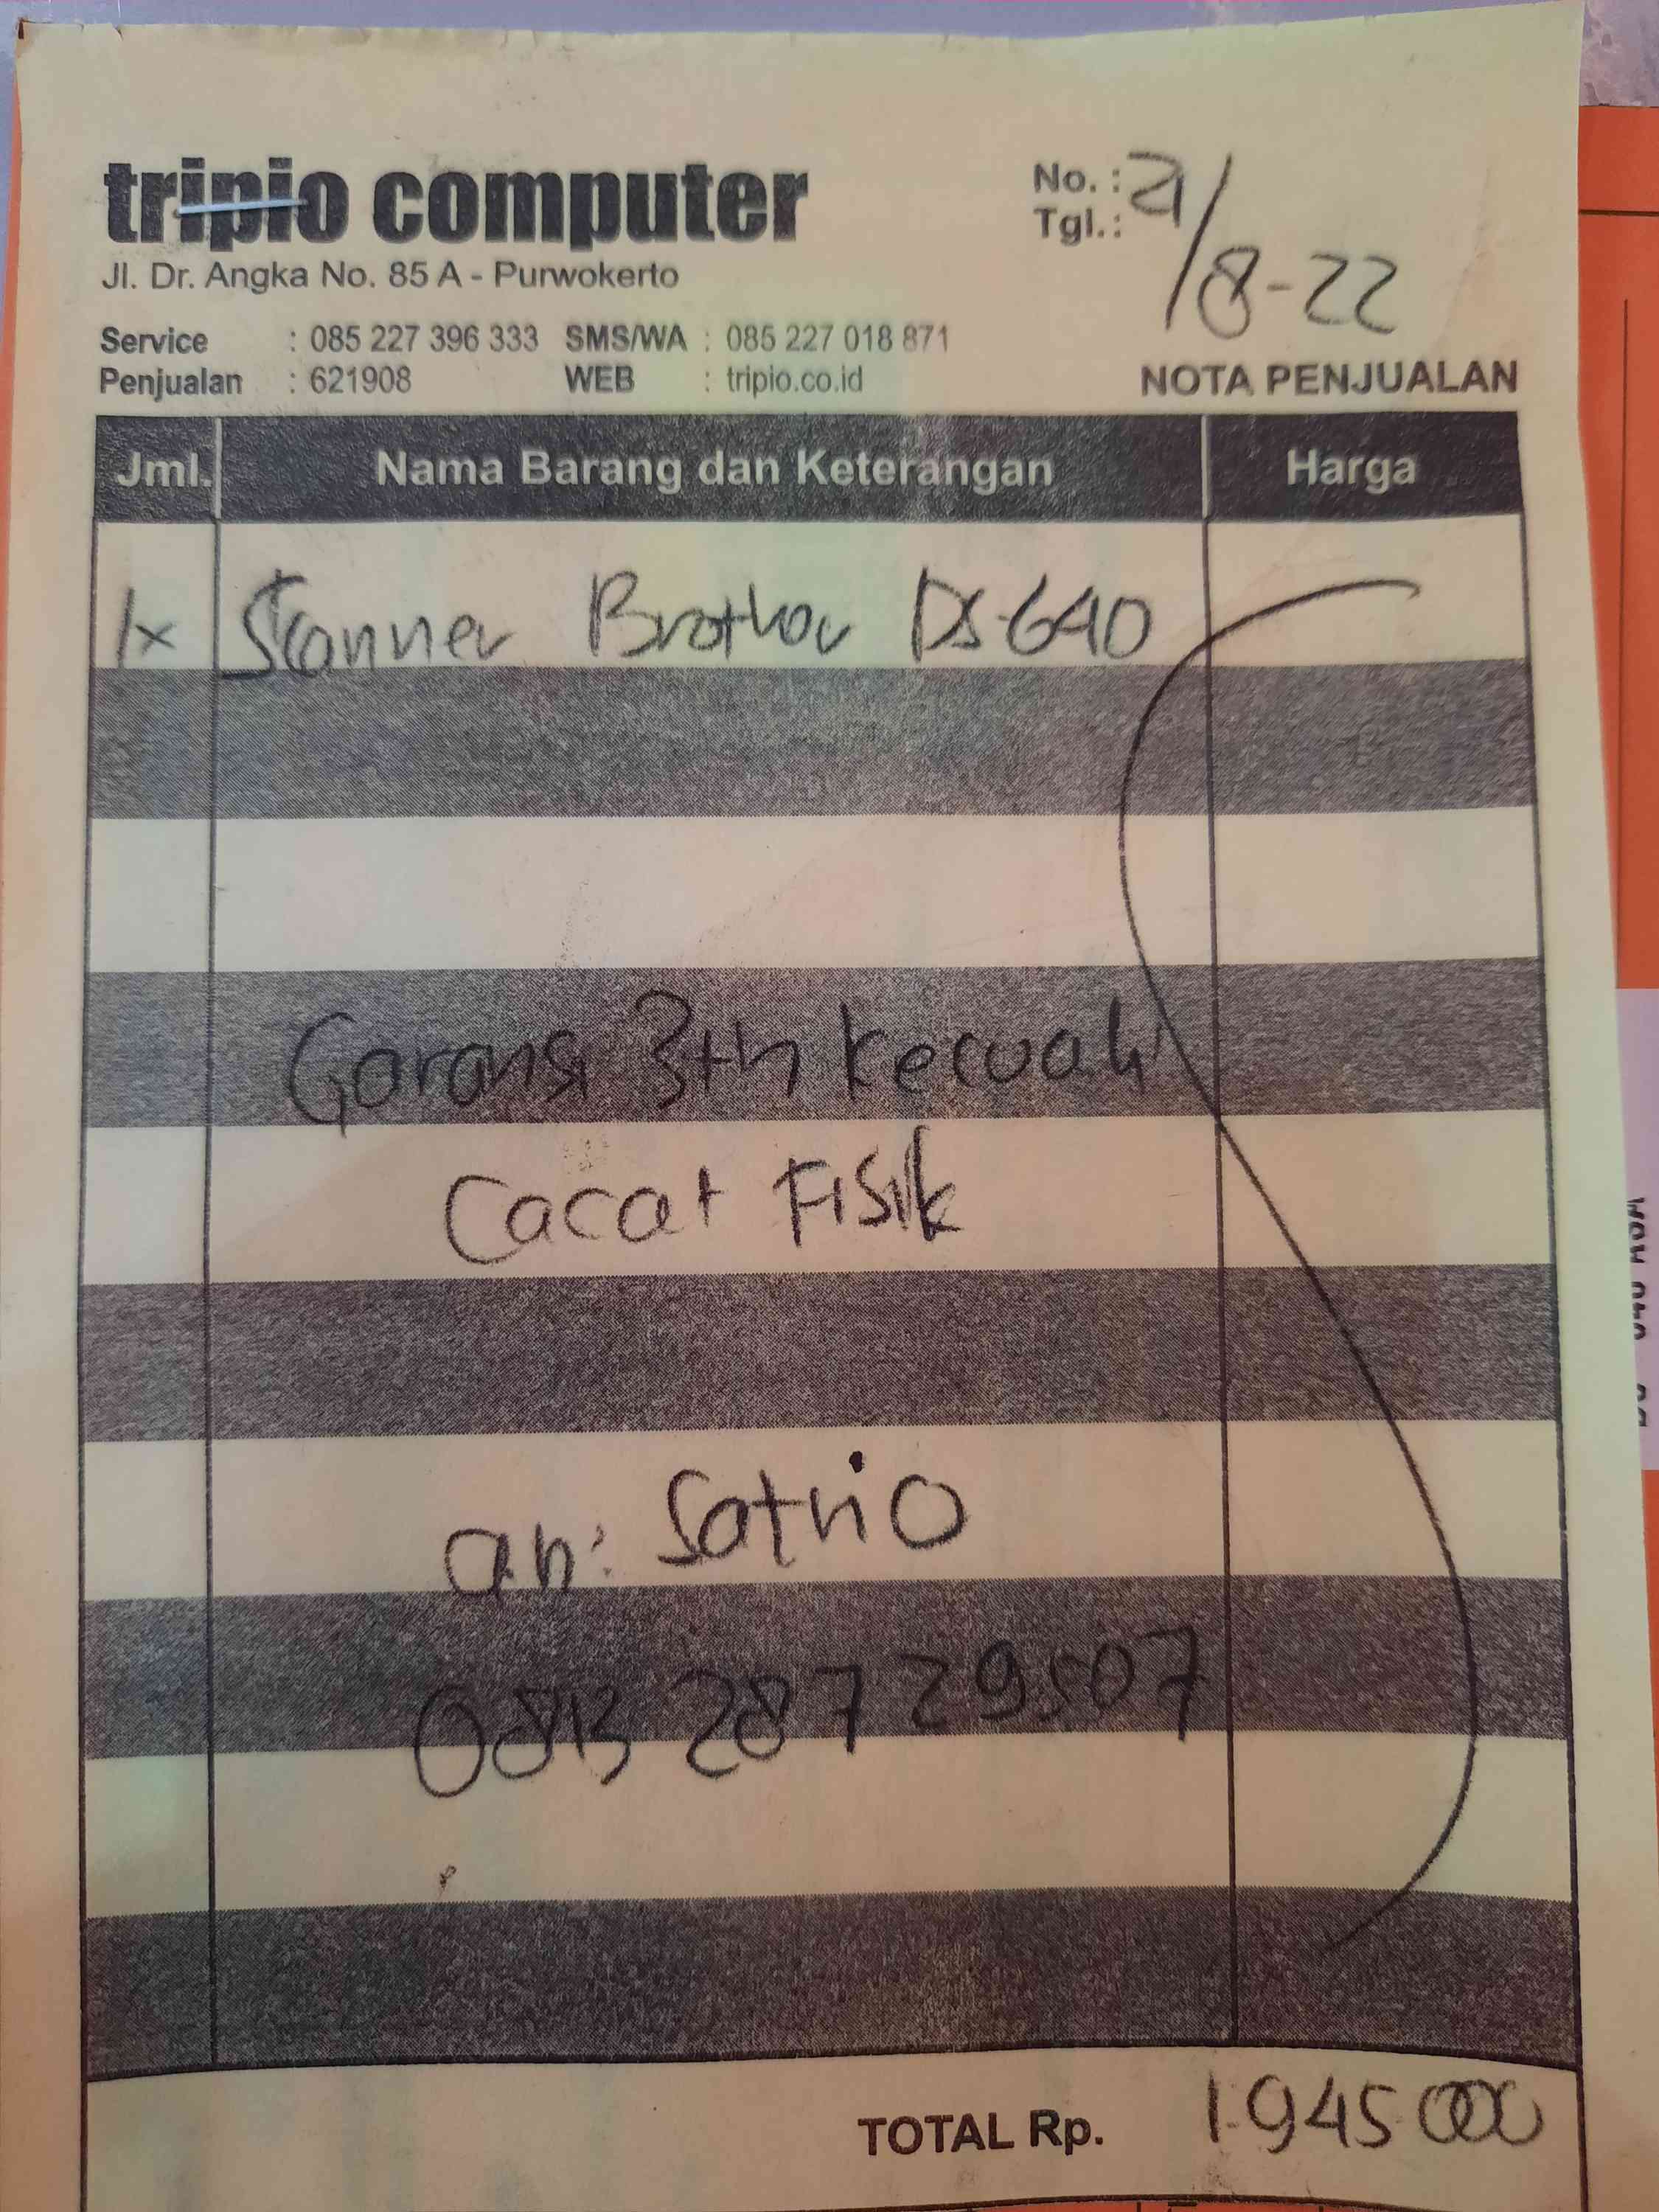 tripio computer
Jl. Dr. Angka No. 85 A - Purwokerto
No. :
Tgl. : 21/8-22
Service : 085 227 396 333 SMS/WA : 085 227 018 871
Penjualan : 621908 WEB : tripio.co.id
NOTA PENJUALAN
Jml. Nama Barang dan Keterangan Harga
1x Scanner Brother DS-640
Garansi 3th kecuali
Cacat Fisik
an: Satrio
0813 28729507
TOTAL Rp. 1.945.000